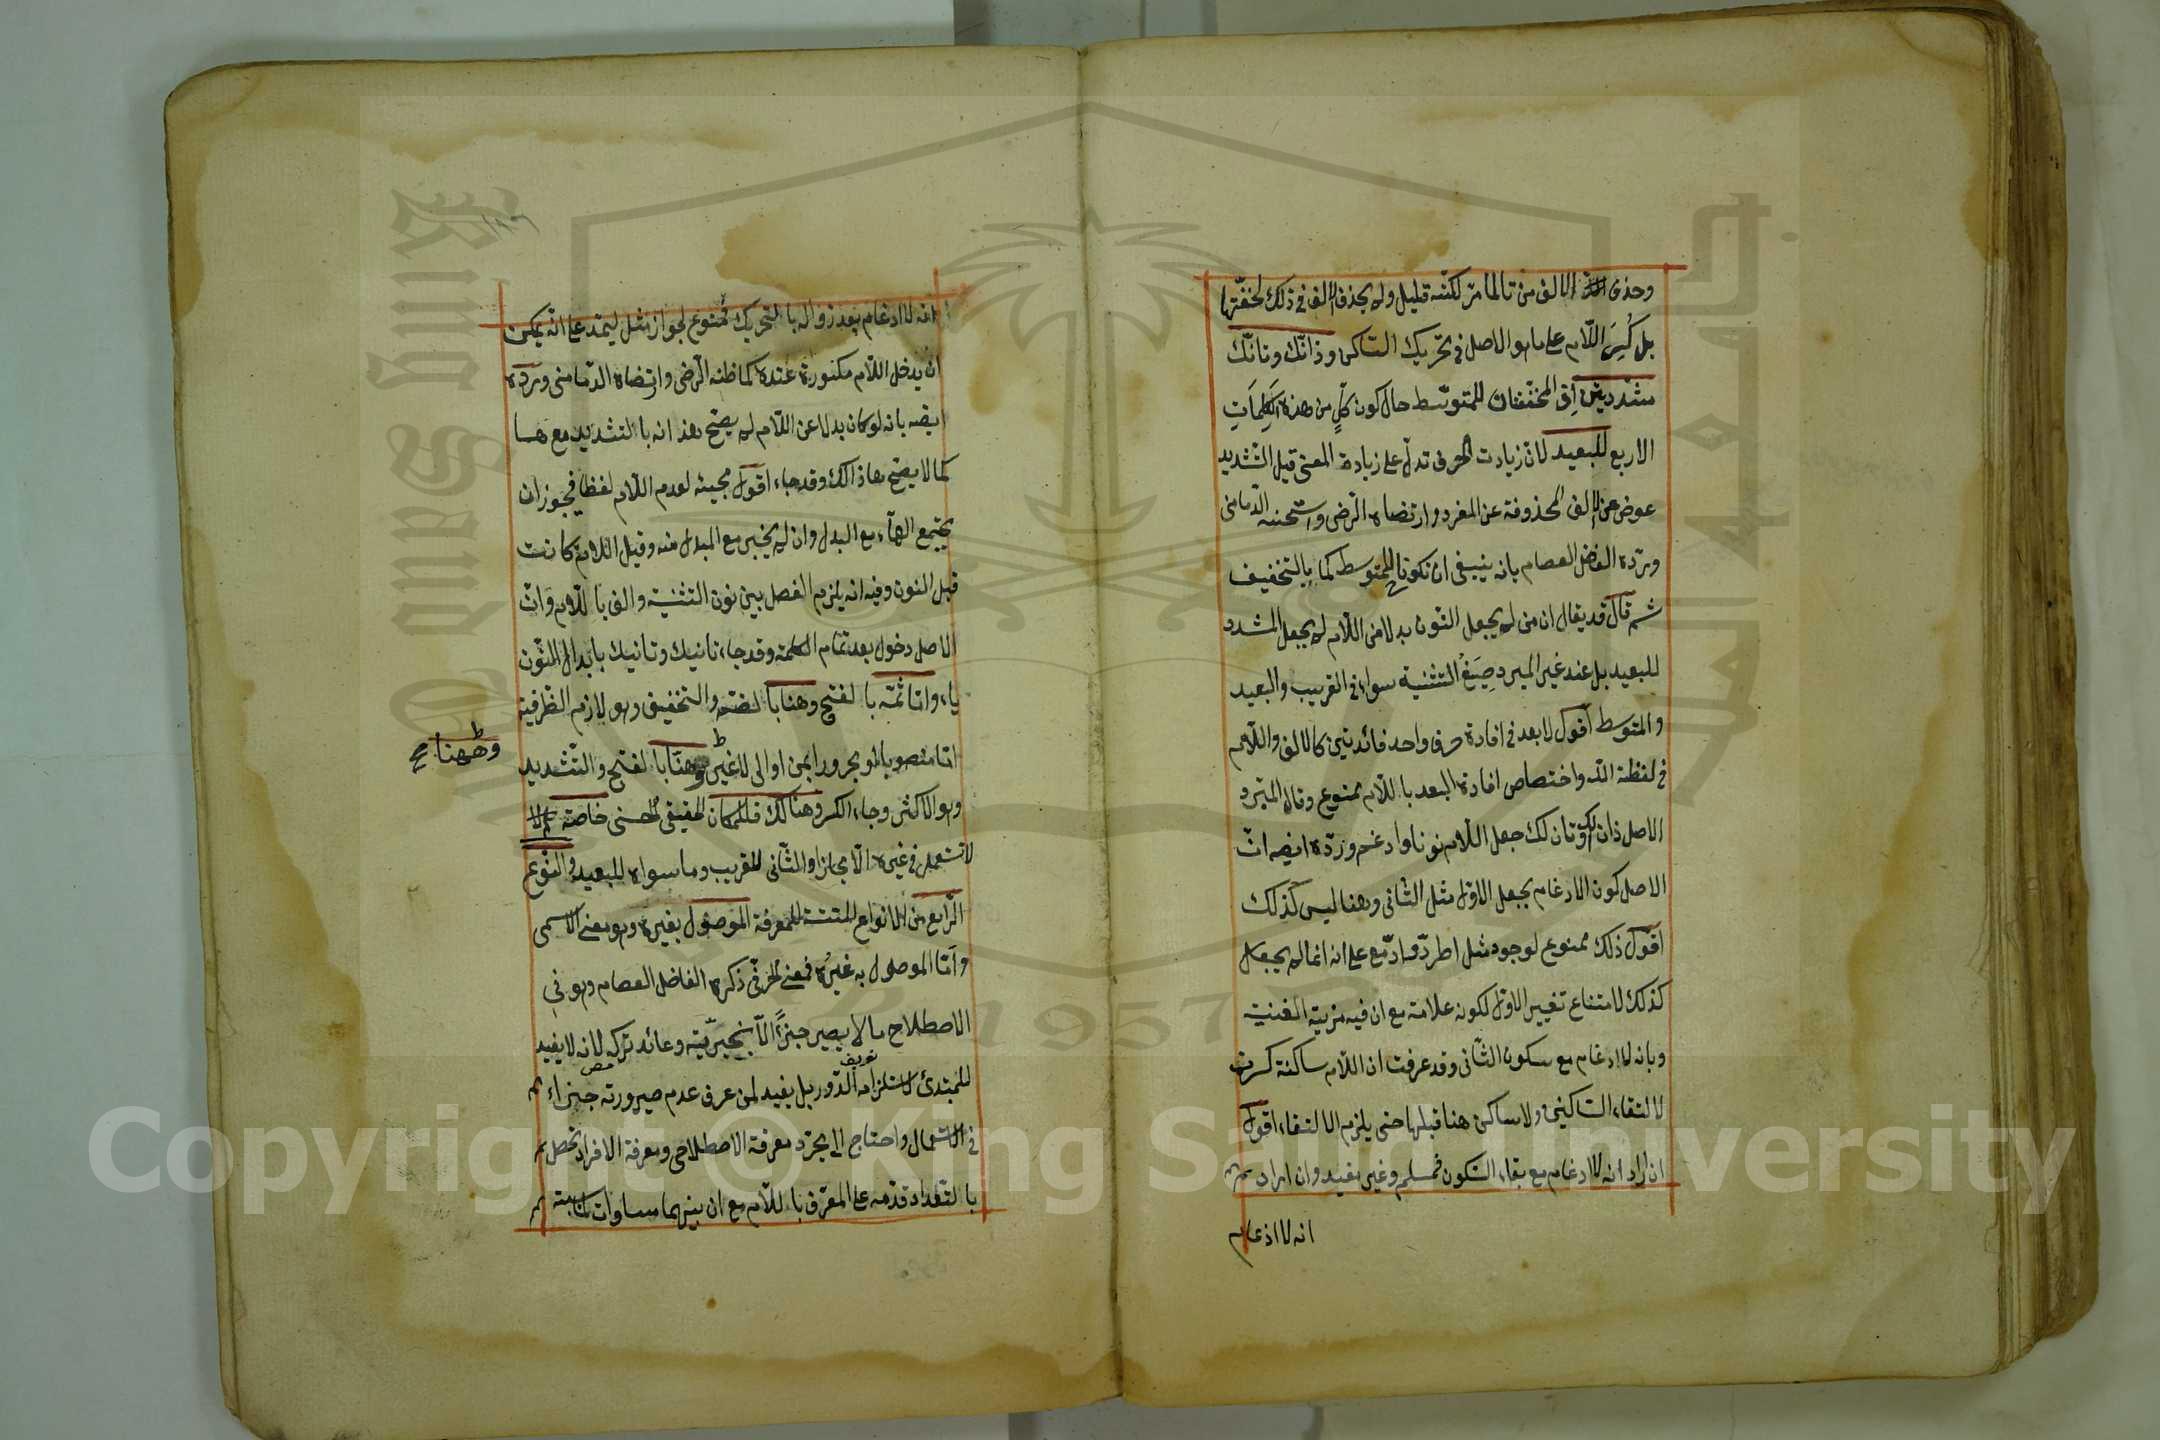 وحذف الالف من تالما مر لكنه قليل ولم يحذف الالف في ذلك لخفتها
بل كُسِرَ اللام على ما هو الاصل في تحريك الساكن وذانّك وتانّك
مشدديتين اى المخففتان للمتوسط حال كون كلٍ من هذه الكلمات
الاربع للبعيد لان زيادت الحرف تدل على زيادة المعنى قيل التشديد
عوض عن الالف المحذوفة عن المفرد وارتضاه الرضى واستحسنه الدمامنى
ويردّه الفاضل العصام بانه ينبغى ان تكونا للمتوسط كما بالتخفيف
ثم قال قد يقال ان من لم يجعل النون بدلا من اللام لم يجعل المشدد
للبعيد بل عند غير المبرد صِيَغُ التثنية سواء فى القريب والبعيد
والمتوسط اقول لا بعد فى افادة حرف واحد فائدتين كالالف واللام
فى لفظة الله واختصاص افادة البعد باللام ممنوع وقال المبرد
الاصل ذان لك وتان لك جعل اللام نونا وادغم وردّه ايضه انّ
الاصل كون الادغام بجعل الاول مثل الثانى وهنا ليس كذلك
اقول ذلك ممنوع لوجود مثل اطرد وادّمع على انه انما لم يجعل
كذلك لامتناع تغيير الاول لكونه علامة مع ان فيه مزية الغنية
وبانه لا ادغام مع سكون الثانى وقد عرفت ان اللام ساكنة كسرت
لالتقاء الساكنين ولا ساكن هنا قبلها حتى يلزم الالتقاء اقول
ان اراد انه لا ادغام مع بقاء السكون فمسلم وغير مفيد وان اراد
انه لا ادغام
١٨٩
انه لا ادغام بعد زواله بالتحريك فممنوع لجواز مثل ليمتد على انه يمكن
ان يدخل اللام مكسورة عنده كما ظنه الرضى وارتضاه الدمامنى ويردّه
ايضه بانه لو كان بدلا عن اللام لم يصح هذانه بالتشديد مع ها
كما لا يصح هاذالك وقد جاء اقول مجيئه لعدم اللام لفظا فيجوز ان
يجتمع الهاء مع البدل وان لم يجئ مع المبدل منه وقيل اللام كانت
قبل النون وفيه انه يلزم الفصل بين نون التثنية والف باللام وانّ
الاصل دخول بعد تمام الكلمة وقد جاء ذانيك وتانيك بابدال النون
ياء واما ثَمَّ بالفتح وهنا بالضمه والتخفيف وهو لازم الظرفية
اما منصوبا او مجرورا بمن او الى لا غير وهنّا بالفتح والتشديد
وههنا صح
وهو الاكثر وجاء الكسر وهنالك فللمكان الحقيقى الحسى خاصة
لا تستعمل فى غيره الا مجازا والثانى للقريب وما سواه للبعيد والنوع
الرابع من الانواع الستة للمعرفة الموصول بغيره وهو معنى الاسمى
واما الموصول به غيره فمعنى الحرفى ذكره الفاضل العصام وهو فى
الاصطلاح ما لا يصير جزءًا الا بخبريّة وعائد تركه لانه لا يفيد
تعريف
للمبتدئ لاستلزامه الدور بل يفيد لمن عرف عدم صيرورته جزاء
فى الاستعمال واحتاج الى مجرد معرفة الاصطلاحى ومعرفة الافراد تحصل
بالتعداد قدّمه على المعرف باللام مع ان بينهما مساوات